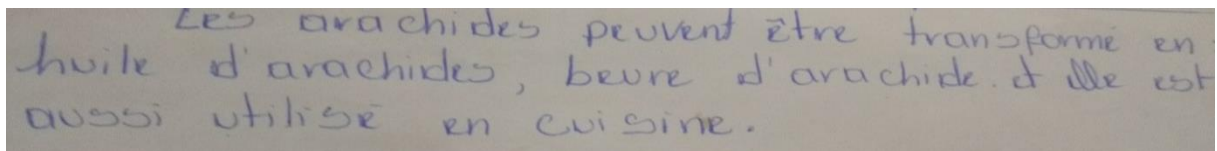 Les arachides peuvent être transformé en
huile d'arachides, beure d'arachide. et elle est
aussi utilisé en cuisine.